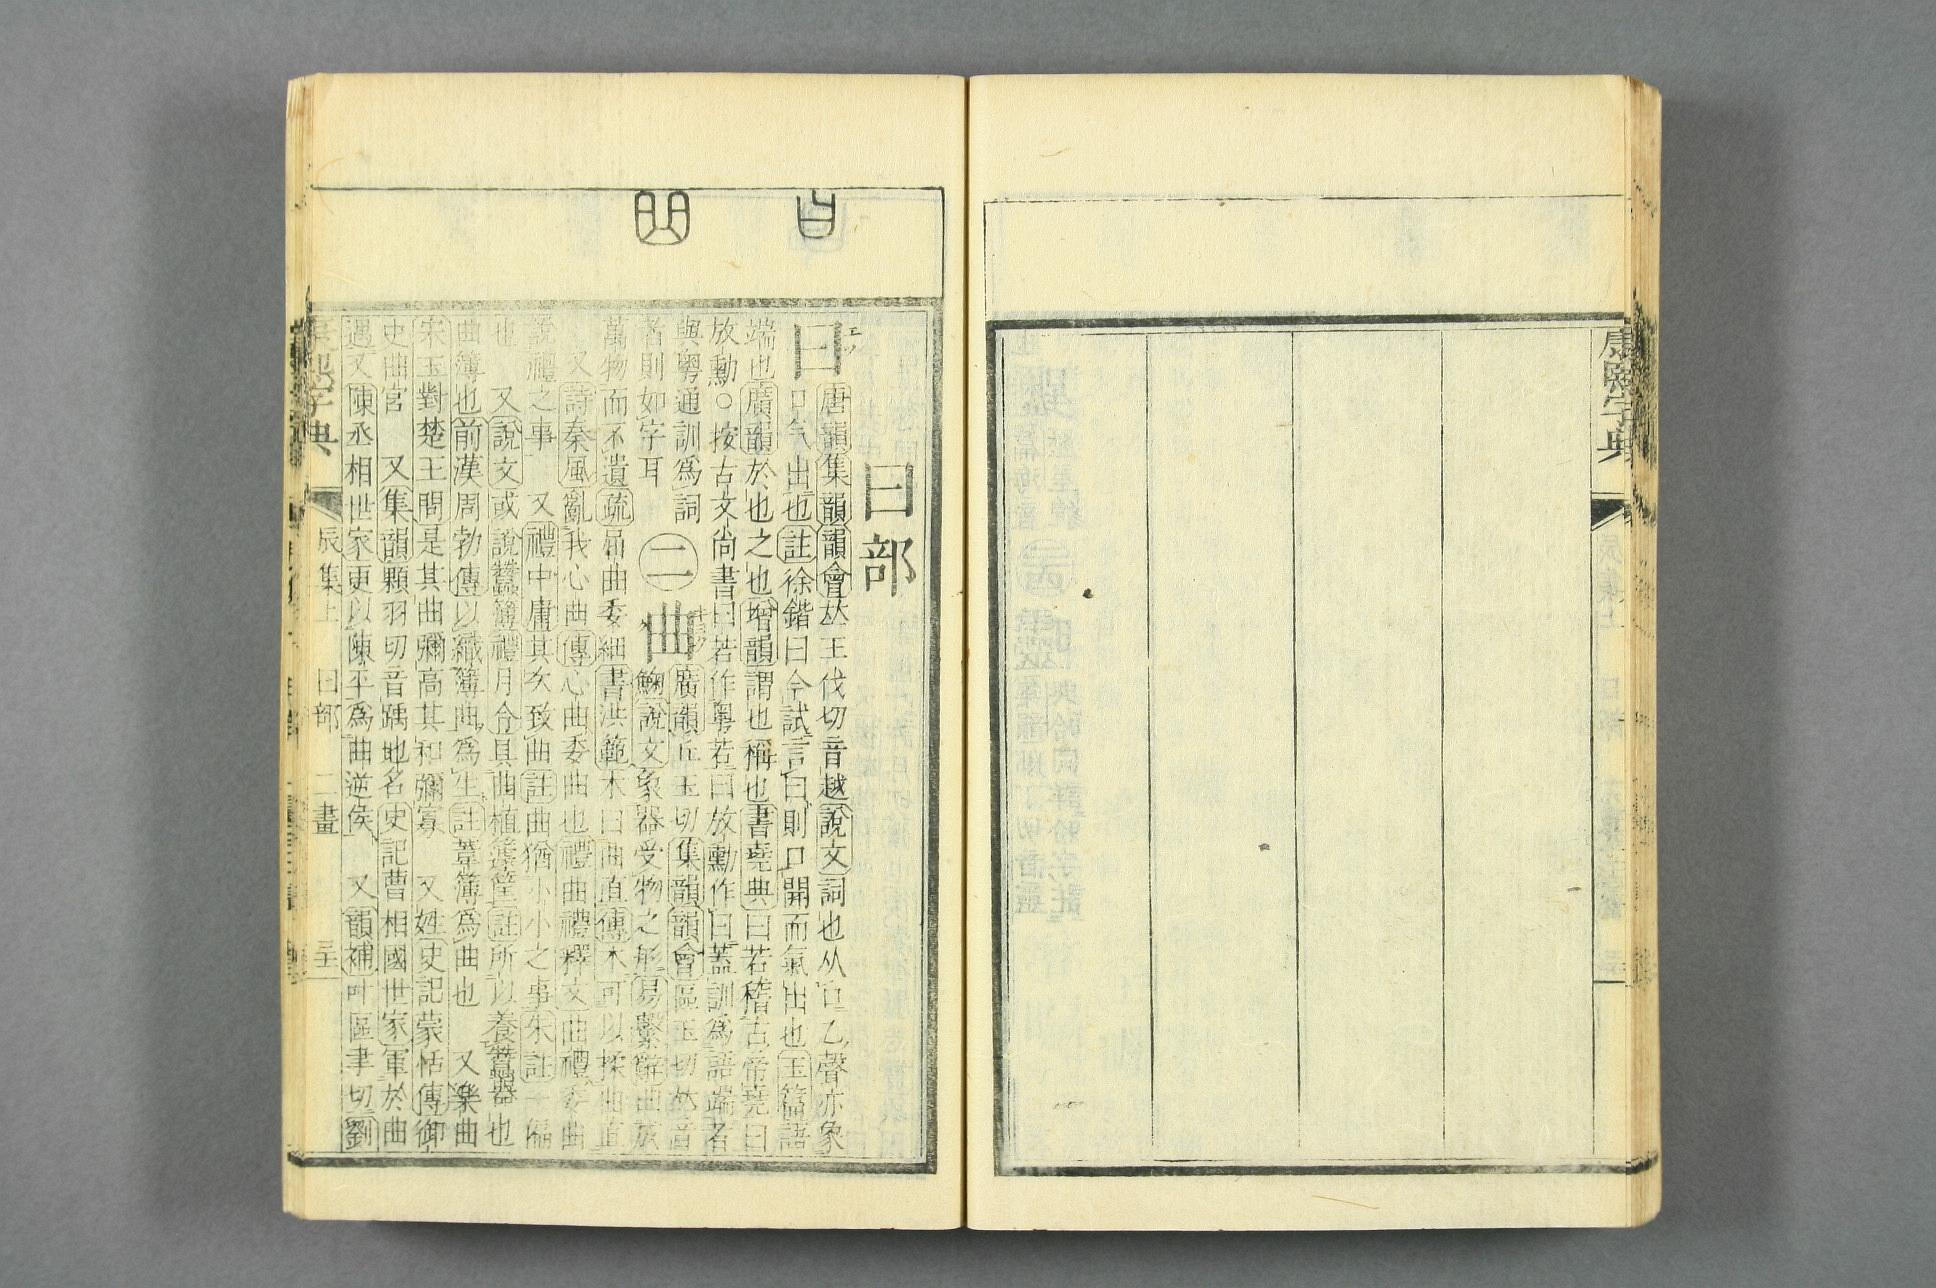 康熙字典
曰部
曰 エツ 唐韻集韻韻會𠀤王伐切音越說文詞也从口乙聲亦象
口气出也註徐鍇曰今試言曰則口開而氣出也玉篇語
端也廣韻於也之也增韻謂也稱也書堯典曰若稽古帝堯曰
放勳○按古文尚書曰若作粤若曰放勳作曰蓋訓爲語端者
與粤通訓爲詞
者則如字耳
二 曲 キヨク
廣韻丘玉切集韻韻會區玉切𠀤音
說文象器受物之形易繫辭曲成
萬物而不遺疏屈曲委細書洪範木曰曲直傳木可以揉曲直
又詩秦風亂我心曲傳心曲委曲也禮曲禮釋文曲禮委曲
說禮之事 又禮中庸其次致曲註曲猶小小之事朱註一偏
也 又說文或說蠶簿禮月令具曲植籧筐註所以養蠶器也
曲簿也前漢周勃傳以織簿曲爲生註葦簿爲曲也 又樂曲
宋玉對楚王問是其曲彌高其和彌寡 又姓史記蒙恬傳御
史曲宮 又集韻顆羽切音踽地名史記曹相國世家軍於曲
遇又陳丞相世家更以陳平爲曲逆侯 又韻補叶區聿切劉
康熙字典 辰集上 曰部 二畫